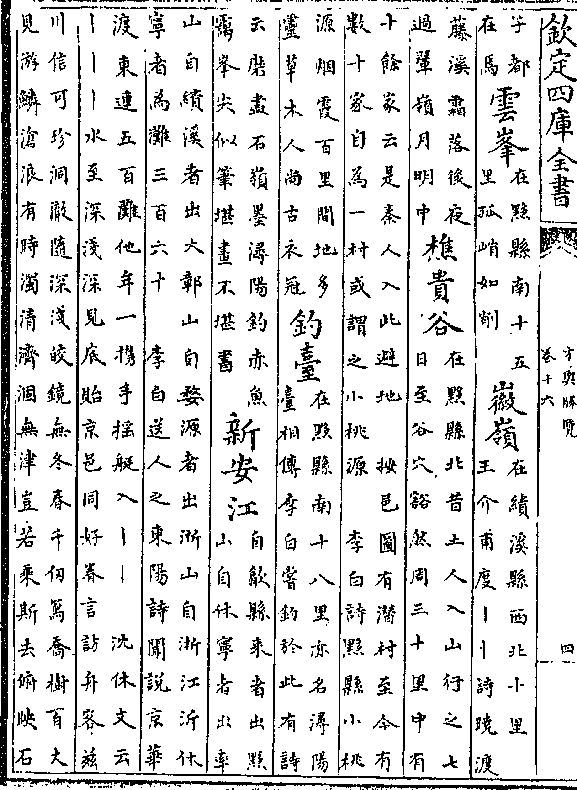 欽定四庫全書
方輿勝覽
卷十六
四
子都
在馬
雲峯
在黟縣南十五
里孤峭如削
徽嶺
在績溪縣西北十里
王介甫度丨丨詩曉渡
藤溪霜落後夜
過翬嶺月明中
樵貴谷
在黟縣北昔土人入山行之七
日至谷穴豁然周三十里中有
十餘家云是秦人入此避地 按邑圖有潛村至今有
數十家自為一村或謂之小桃源 李白詩黟縣小桃
源烟霞百里間地多
靈草木人尚古衣冠
釣臺
在黟縣南十八里亦名潯陽
臺相傳李白嘗釣於此有詩
云磨盡石嶺墨潯陽釣赤魚
靄峯尖似筆堪畫不堪書
新安江
自歙縣來者出黟
山自休寧者出率
山自績溪者出大鄣山自婺源者出浙山自浙江泝休
寧者為灘三百六十 李白送人之東陽詩聞說京華
渡東連五百灘他年一攜手摇艇入丨丨 沈休文云
丨丨丨水至深淺深見底貽京邑同好眷言訪舟客兹
川信可珍洞徹隨深淺皎鏡無冬春千仞寫喬樹百丈
見游鱗滄浪有時濁清濟涸無津豈若乘斯去俯映石